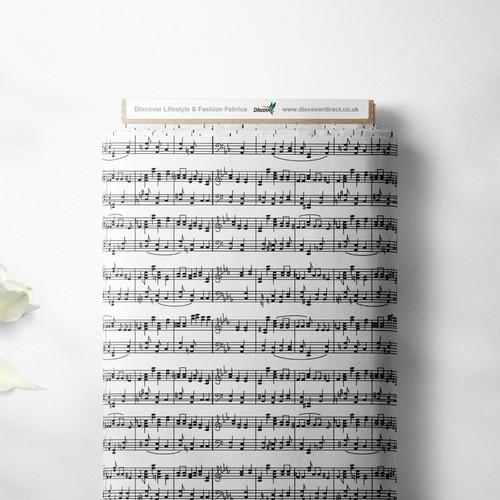 Discover Lifestyle & Fashion Fabrics Discover www.discoverdirect.co.uk